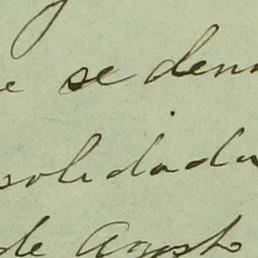 e se den
solidada
de Agosto